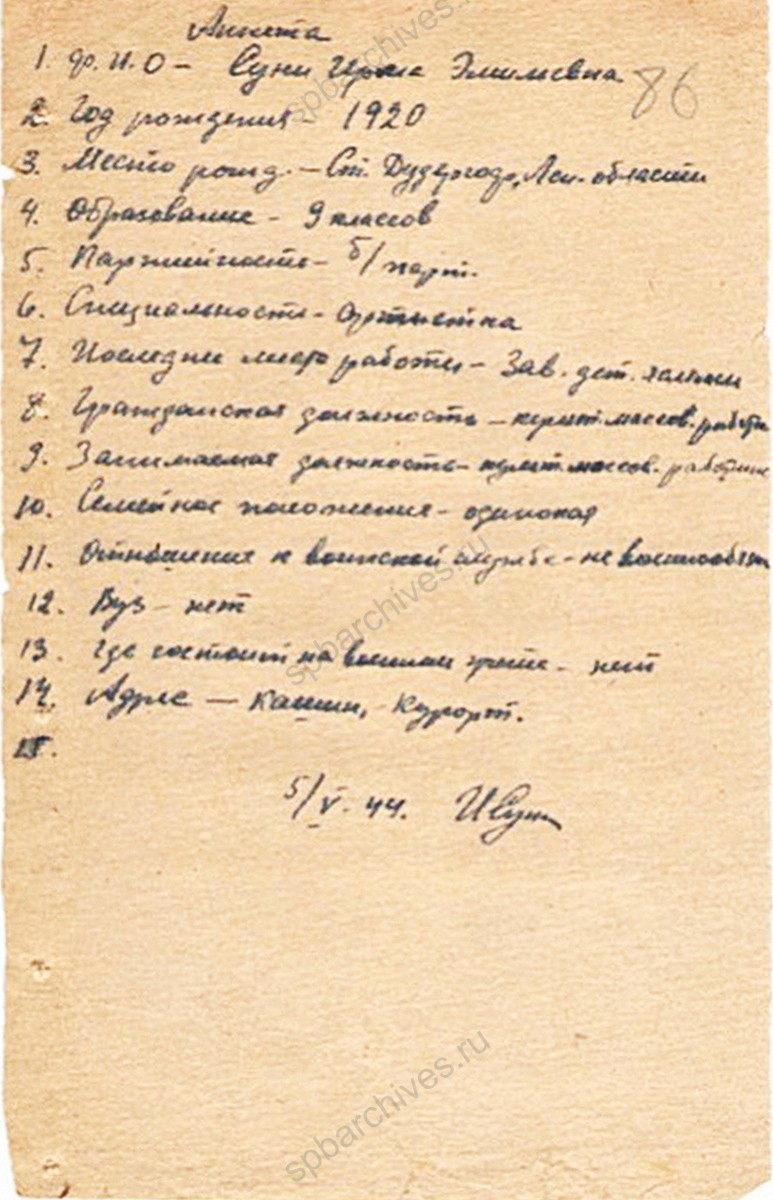 Анкета
1. Ф.И.О – Суни Ирма Эмильевна
86
2. Год рождения – 1920
3. Место рожд. – Ст. Дудергоф, Лен. области
4. Образование – 9 классов
5. Партийность – б/парт.
6. Специальность – артистка
7. Последнее место работы – Зав. дет. яслями
8. Гражданская должность – культ. массов. работн
9. Занимаемая должность – культ. массов. работник
10. Семейное положение – одинокая
11. Отношение к воинской службе – не военнообяз
12. Вуз – нет
13. Где состоит на военном учете – нет
14. Адрес – Кашин, Курорт.
15.
5/V. 44. ИСуни
spbarchives.ru
spbarchives.ru
spbarchives.ru